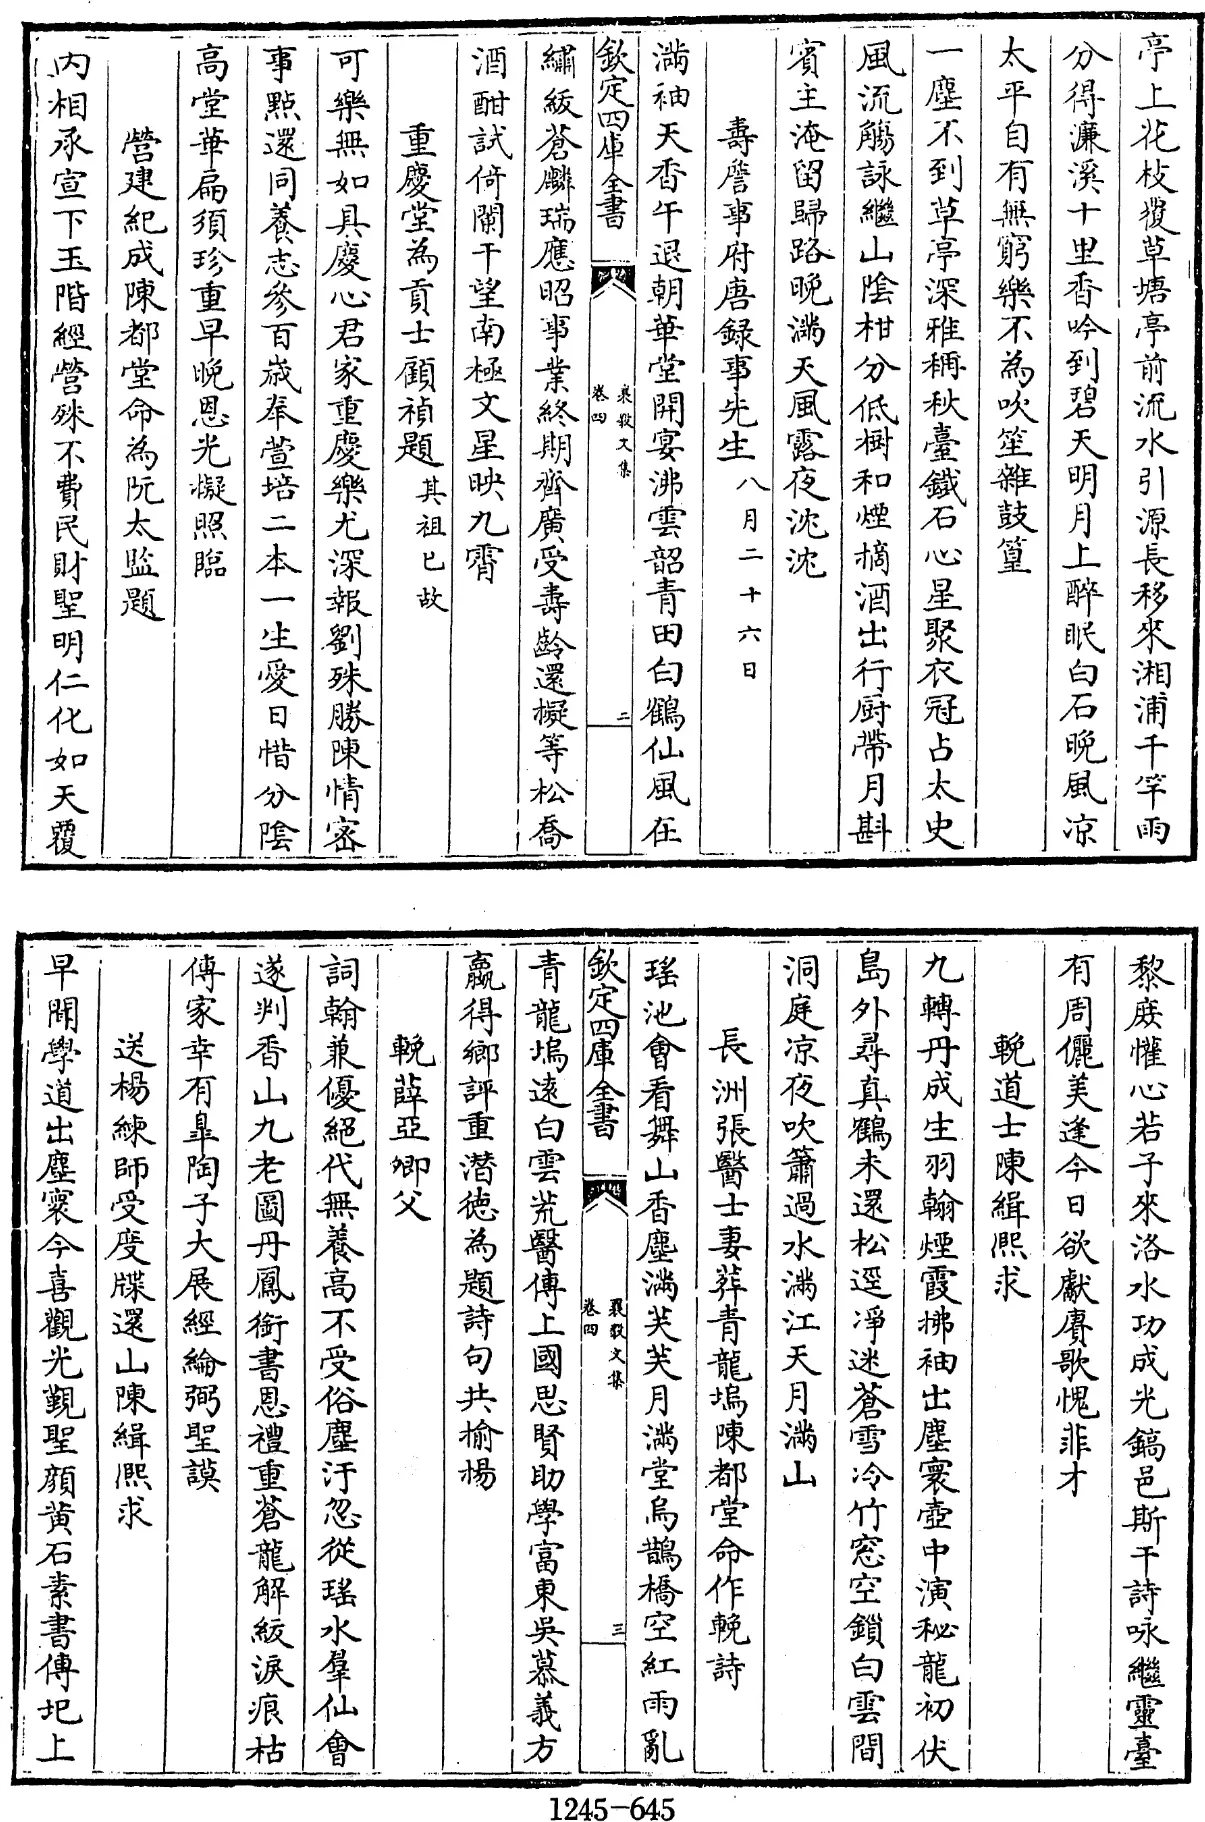 亭上花枝覆草塘亭前流水引源長移來湘浦千竿雨
分得濂溪十里香吟到碧天明月上醉眠白石晚風凉
太平自有無窮樂不為吹笙雜鼓篁
一塵不到草亭深雅稱秋臺鐵石心星聚衣冠占太史
風流觴詠繼山陰柑分低樹和煙摘酒出行厨帶月斟
賓主淹留歸路晚滿天風露夜沈沈
壽詹事府唐録事先生八月二十六日
滿袖天香午退朝華堂開宴沸雲韶青田白鶴仙風在
欽定四庫全書
襄毅文集
卷四
二
繡紱蒼麟瑞應昭事業終期齊廣受壽齡還擬等松喬
酒酣試倚闌干望南極文星映九霄
重慶堂為貢士顧禎題其祖已故
可樂無如具慶心君家重慶樂尤深報劉殊勝陳情密
事點還同養志參百歲奉萱培二本一生愛日惜分陰
高堂華扁須珍重早晚恩光擬照臨
營建紀成陳都堂命為阮太監題
内相承宣下玉階經營殊不費民財聖明仁化如天覆
黎庶懽心若子來洛水功成光鎬邑斯干詩咏繼靈臺
有周儷美逢今日欲獻賡歌愧非才
輓道士陳緝熙求
九轉丹成生羽翰煙霞拂袖出塵寰壺中演秘龍初伏
島外尋真鶴未還松逕凈迷蒼雪冷竹窓空鎖白雲間
洞庭凉夜吹簫過水滿江天月滿山
長洲張醫士妻葬青龍塢陳都堂命作輓詩
瑤池會看舞山香塵滿芙芙月滿堂烏鵲橋空紅雨亂
欽定四庫全書
襄毅文集
卷四
三
青龍塢遠白雲荒醫傳上國思賢助學富東吳慕義方
贏得鄉評重潛德為題詩句共揄揚
輓薛亞卿父
詞翰兼優絕代無養高不受俗塵汙忽從瑤水羣仙會
遂判香山九老圖丹鳳銜書恩禮重蒼龍解紱淚痕枯
傳家幸有臯陶子大展經綸弼聖謨
送楊練師受度牒還山陳緝熙求
早聞學道出塵寰今喜觀光覲聖顔黄石素書傳圯上
1245-645